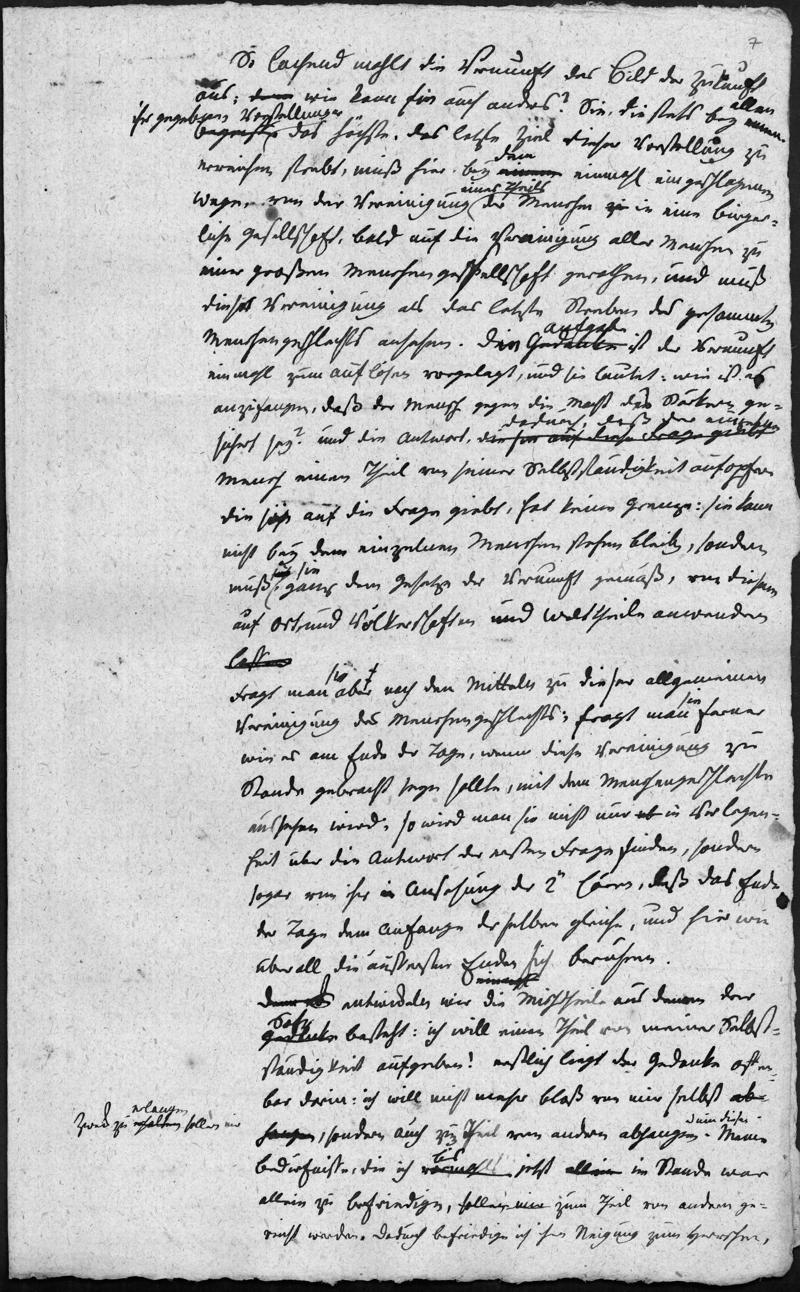 7
So lachend mahlt die Vernunft das Bild der Zukunft
aus; denn wie kann sie auch anders? Sie, die stets bey allen
ihr gegebenen Vorstellungen
das höchste, das letzte Ziel dieser Vorstellung zu
erreichen strebt, muß hier bey dem einen einmahl eingeschlagenen
Wege, von der Vereinigung eines Theils der Menschen zu in eine bürger-
liche Gesellschaft, bald auf die Vereinigung aller Menschen zu
einer großen Menschengesellschaft gerathen, und muß
diese Vereinigung als das letzte Streben des gesammten
Menschengeschlechts ansehen. Die Gedanke Aufgabe ist der Vernunft
einmahl zum auflösen vorgelegt, und sie lautet: wie ist es
anzufangen, daß der Mensch gegen die Macht des Stärkern ge-
sichert sey? und die Antwort, die sie auf diese Frage giebt dadurch, daß der einzelne
Mensch einen Theil von seiner Selbstständigkeit aufopfere
die sie auf die Frage giebt, hat keine Grenze: sie kann
nicht bey dem einzelnen Menschen stehen bleiben, sondern
muß sie ganz dem Gesetze der Vernunft gemäß, von diesem
auf Ort und Völkerschaften und Welttheile anwenden
lassen
Fragt man sie aber nach den Mitteln zu dieser allgemeinen
Vereinigung des Menschengeschlechts; fragt man sie ferner
wie es am Ende der Tage, wenn diese Vereinigung zu
Stande gebracht seyn sollte, mit dem Menschengeschlechte
aussehen wird, so wird man sie nicht nur in Verlegen-
heit über die Antwort der ersten Frage finden, sondern
sogar von ihr in Ansehung der 2n hören, daß das Ende
der Tage dem Anfange derselben gleiche, und hier wie
überall die äussersten Enden sich berühren.
entwickeln wir die Mischtheile aus denen der
Gedanke Satz besteht: ich will einen Theil von meiner Selbst-
ständigkeit aufgeben! erstlich liegt der Gedanke offen-
bar darin: ich will nicht mehr bloß von mir selbst ab-
hangen, sondern auch zum Theil von andern abhangen. Meine
Zweck zu erhalten erlangen sollen wir
Bedürfnisse, die ich bis jetzt allein im Stande war
allein zu befriedigen, sollen zum Theil von andern ge-
reicht werden. Dadurch befriedige ich ihre Neigung zum Herrschen,